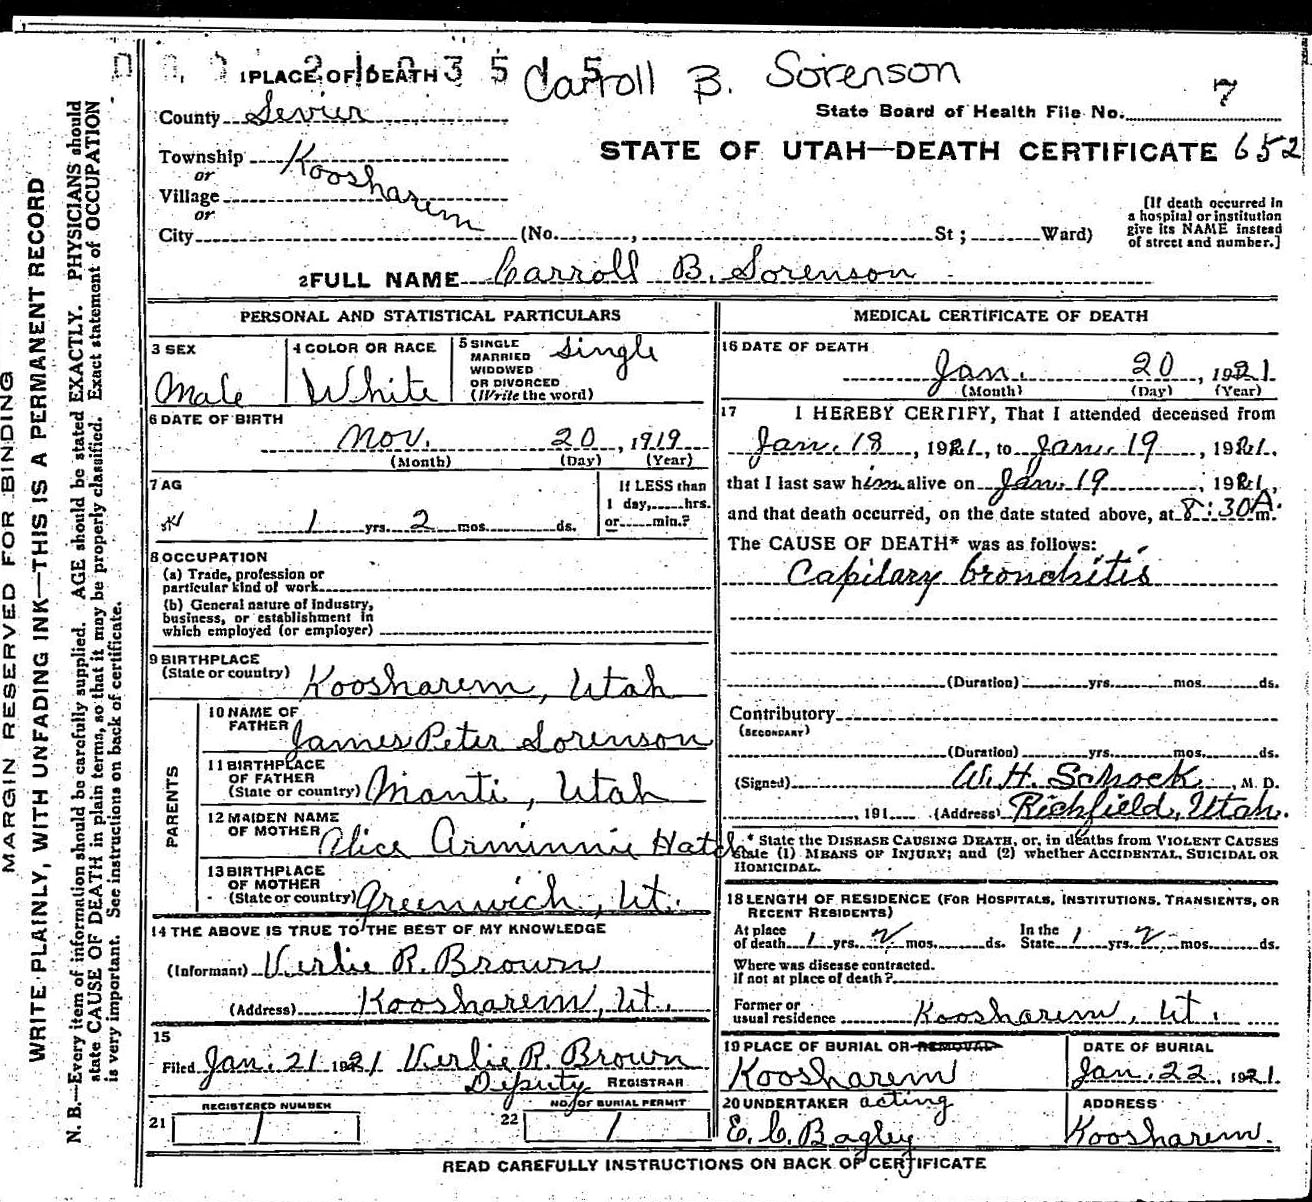 1 PLACE OF DEATH
Carroll B. Sorenson
County Sevier
State Board of Health File No. 7
Township Koosharem
STATE OF UTAH—DEATH CERTIFICATE 652
or
Village
or
City (No. , St ; Ward)
[If death occurred in
a hospital or institution
give its NAME instead
of street and number.]
2 FULL NAME Carroll B. Sorenson
PERSONAL AND STATISTICAL PARTICULARS
3 SEX
Male
4 COLOR OR RACE
White
5 SINGLE
MARRIED
WIDOWED
OR DIVORCED
(Write the word)
Single
6 DATE OF BIRTH
Nov. 20, 1919
(Month) (Day) (Year)
7 AG
1 yrs. 2 mos. ds.
If LESS than
1 day, hrs.
or min.?
8 OCCUPATION
(a) Trade, profession or
particular kind of work
(b) General nature of Industry,
business, or establishment in
which employed (or employer)
9 BIRTHPLACE
(State or country) Koosharem, Utah
PARENTS
10 NAME OF
FATHER James Peter Sorenson
11 BIRTHPLACE
OF FATHER
(State or country) Manti, Utah
12 MAIDEN NAME
OF MOTHER Alice Arminnie Hatch
13 BIRTHPLACE
OF MOTHER
(State or country) Greenwich, Ut.
14 THE ABOVE IS TRUE TO THE BEST OF MY KNOWLEDGE
(Informant) Verlie R. Brown
(Address) Koosharem, Ut.
15
Filed Jan. 21 1921 Verlie R. Brown
Deputy REGISTRAR
21 REGISTERED NUMBER
1
22 NO. OF BURIAL PERMIT
1
MEDICAL CERTIFICATE OF DEATH
16 DATE OF DEATH
Jan. 20, 1921
(Month) (Day) (Year)
17 I HEREBY CERTIFY, That I attended deceased from
Jan. 18, 1921, to Jan. 19, 1921,
that I last saw him alive on Jan. 19 1921,
and that death occurred, on the date stated above, at 8:30 A m.
The CAUSE OF DEATH* was as follows:
Capilary bronchitis
(Duration) yrs. mos. ds.
Contributory
(SECONDARY)
(Duration) yrs. mos. ds.
(Signed) W. H. Schock, M. D.
, 191 (Address) Richfield, Utah.
* State the DISEASE CAUSING DEATH, or, in deaths from VIOLENT CAUSES
state (1) MEANS OF INJURY; and (2) whether ACCIDENTAL, SUICIDAL OR
HOMICIDAL.
18 LENGTH OF RESIDENCE (FOR HOSPITALS, INSTITUTIONS, TRANSIENTS, OR
RECENT RESIDENTS)
At place
of death 1 yrs. 2 mos. ds.
In the
State 1 yrs. 2 mos. ds.
Where was disease contracted.
if not at place of death?
Former or
usual residence Koosharem, Ut.
19 PLACE OF BURIAL OR REMOVAL
Koosharem
DATE OF BURIAL
Jan. 22, 1921
20 UNDERTAKER acting
E. C. Bagley
ADDRESS
Koosharem.
READ CAREFULLY INSTRUCTIONS ON BACK OF CERTIFICATE
MARGIN RESERVED FOR BINDING
WRITE PLAINLY, WITH UNFADING INK—THIS IS A PERMANENT RECORD
N. B.—Every item of information should be carefully supplied. AGE should be stated EXACTLY. PHYSICIANS should
state CAUSE OF DEATH in plain terms, so that it may be properly classified. Exact statement of OCCUPATION
is very important. See instructions on back of certificate.